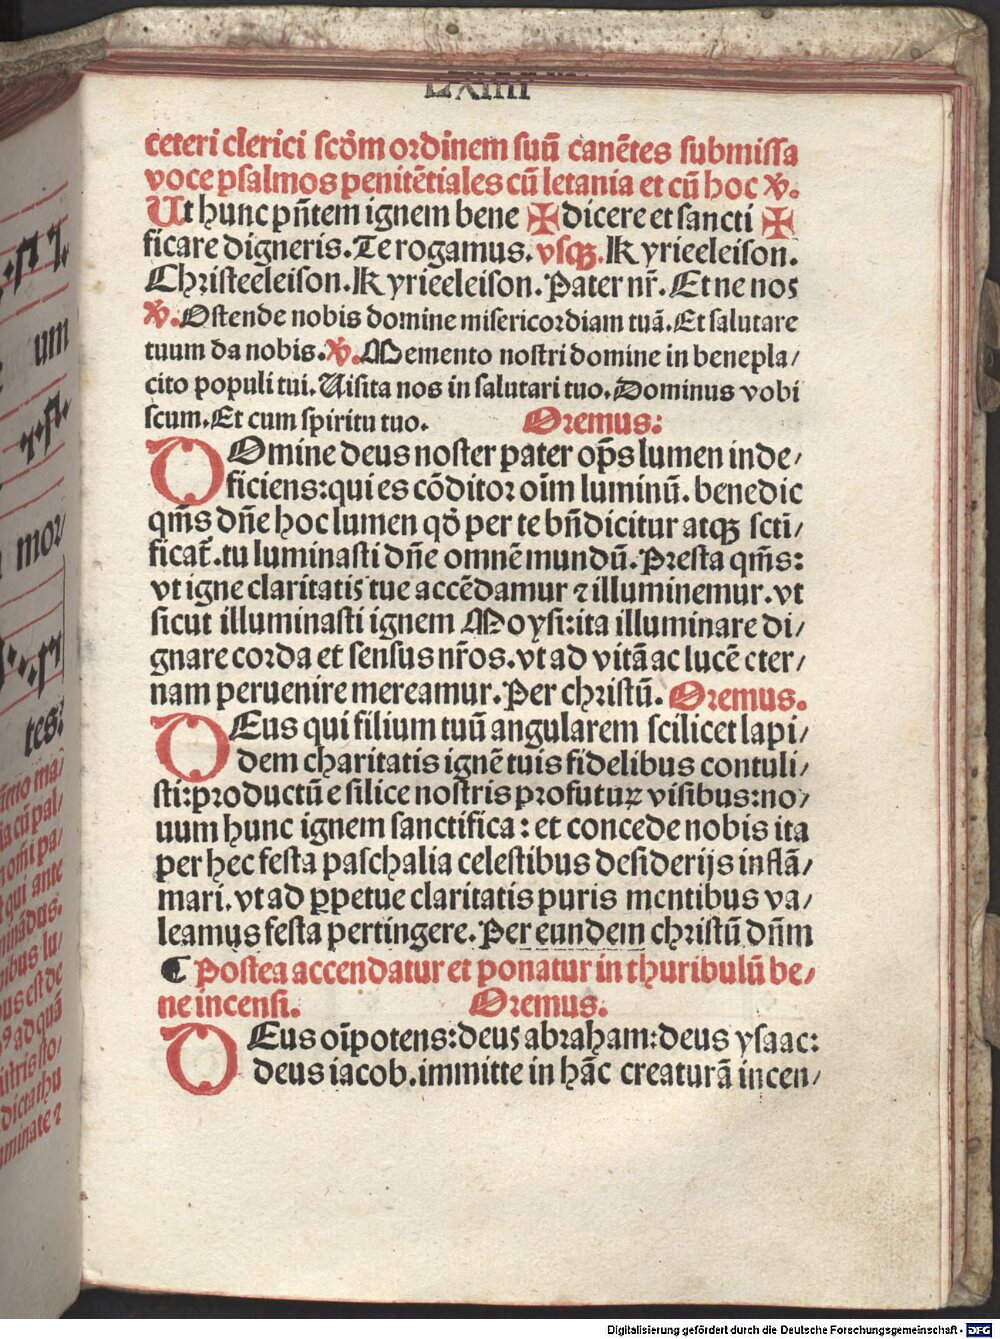 LXIIII
ceteri clerici scḋm ordinem suū canētes submissa
voce psalmos penitētiales cū letania et cū hoc ℣.
Ut hunc pn̄tem ignem bene ✠ dicere et sancti ✠
ficare digneris. Te rogamus. vsqꝫ. Kyrieeleison.
Christeeleison. Kyrieeleison. Pater nr̄. Et ne nos
℣. Ostende nobis domine misericordiam tuā. Et salutare
tuum da nobis. ℣. Memento nostri domine in benepla/
cito populi tui. Uisita nos in salutari tuo. Dominus vobi
scum. Et cum spiritu tuo. Oremus:
DOmine deus noster pater op̄s lumen inde/
ficiens: qui es cōditor oīm luminū. benedic
qm̄s dn̄e hoc lumen qḋ per te bn̄dicitur atqꝫ sctī/
ficat̄. tu luminasti dn̄e omnē mundū. Presta qm̄s:
vt igne claritatis tue accēdamur ⁊ illuminemur. vt
sicut illuminasti ignem Moysi: ita illuminare di/
gnare corda et sensus nr̄os. vt ad vitā ac lucē eter/
nam peruenire mereamur. Per christū. Oremus.
DEus qui filium tuū angularem scilicet lapi/
dem charitatis ignē tuis fidelibus contuli/
sti: productū e silice nostris profuturꝝ visibus: no/
uum hunc ignem sanctifica: et concede nobis ita
per hec festa paschalia celestibus desiderijs inflā/
mari. vt ad ꝑpetue claritatis puris mentibus va/
leamus festa pertingere. Per eundem christū dn̄m
¶ Postea accendatur et ponatur in thuribulū be/
ne incensi. Oremus.
DEus oīpotens: deus abraham: deus ysaac:
deus iacob. immitte in hāc creaturā incen/
um
mor/
tes:
qui ante
nibus lu/
us est de
Digitalisierung gefördert durch die Deutsche Forschungsgemeinschaft - DFG